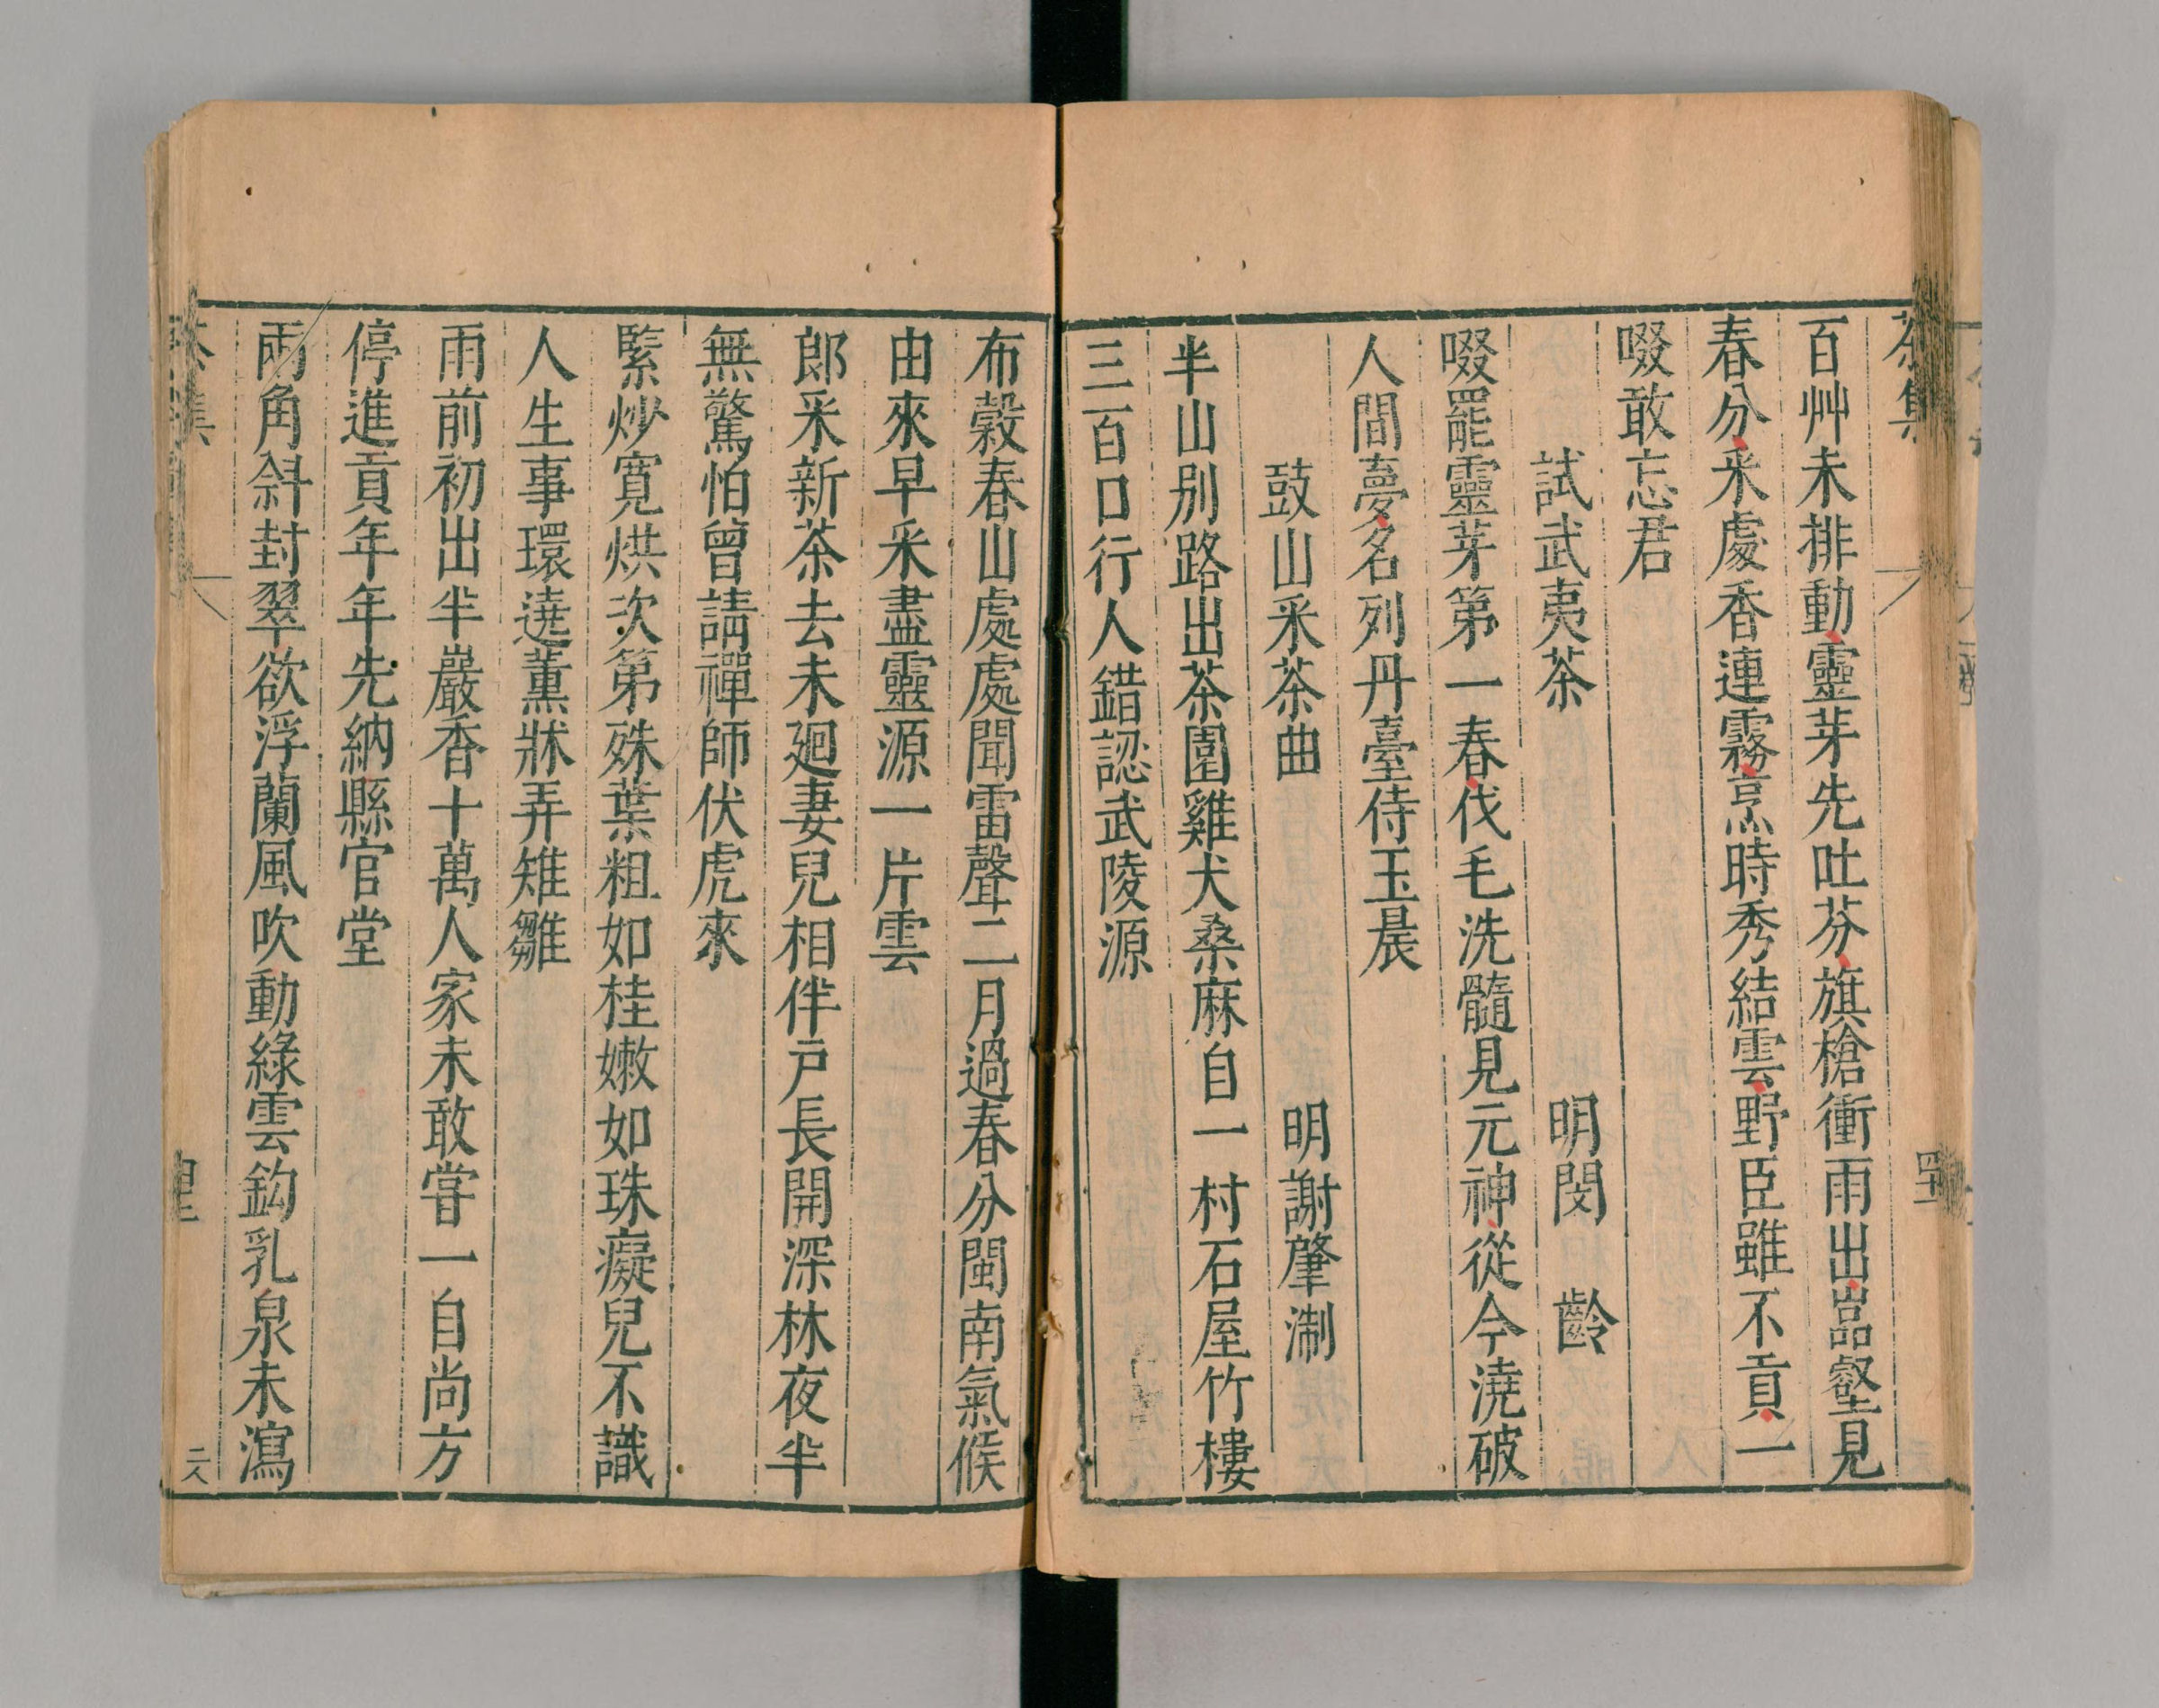 茶集
百艸未排動靈芽先吐芬旗槍衝雨出嵓壑見
春分采處香連霧烹時秀結雲野臣雖不貢一
啜敢忘君
試武夷茶 明閔 齡
啜罷靈芽第一春伐毛洗髓見元神從今澆破
人間夢名列丹臺侍玉晨
鼓山采茶曲 明謝肇淛
半山別路出茶園雞犬桑麻自一村石屋竹樓
三百口行人錯認武陵源
布穀春山處處聞雷聲二月過春分閩南氣候
由來早采盡靈源一片雲
郎采新茶去未廻妻兒相伴戸長開深林夜半
無驚怕曾請禪師伏虎來
緊炒寛烘次第殊葉粗如桂嫩如珠癡兒不識
人生事環遶薰牀弄雉雛
雨前初出半巖香十萬人家未敢嘗一自尚方
停進貢年年先納縣官堂
兩角斜封翠欲浮蘭風吹動綠雲鈎乳泉未瀉
茶集
二八